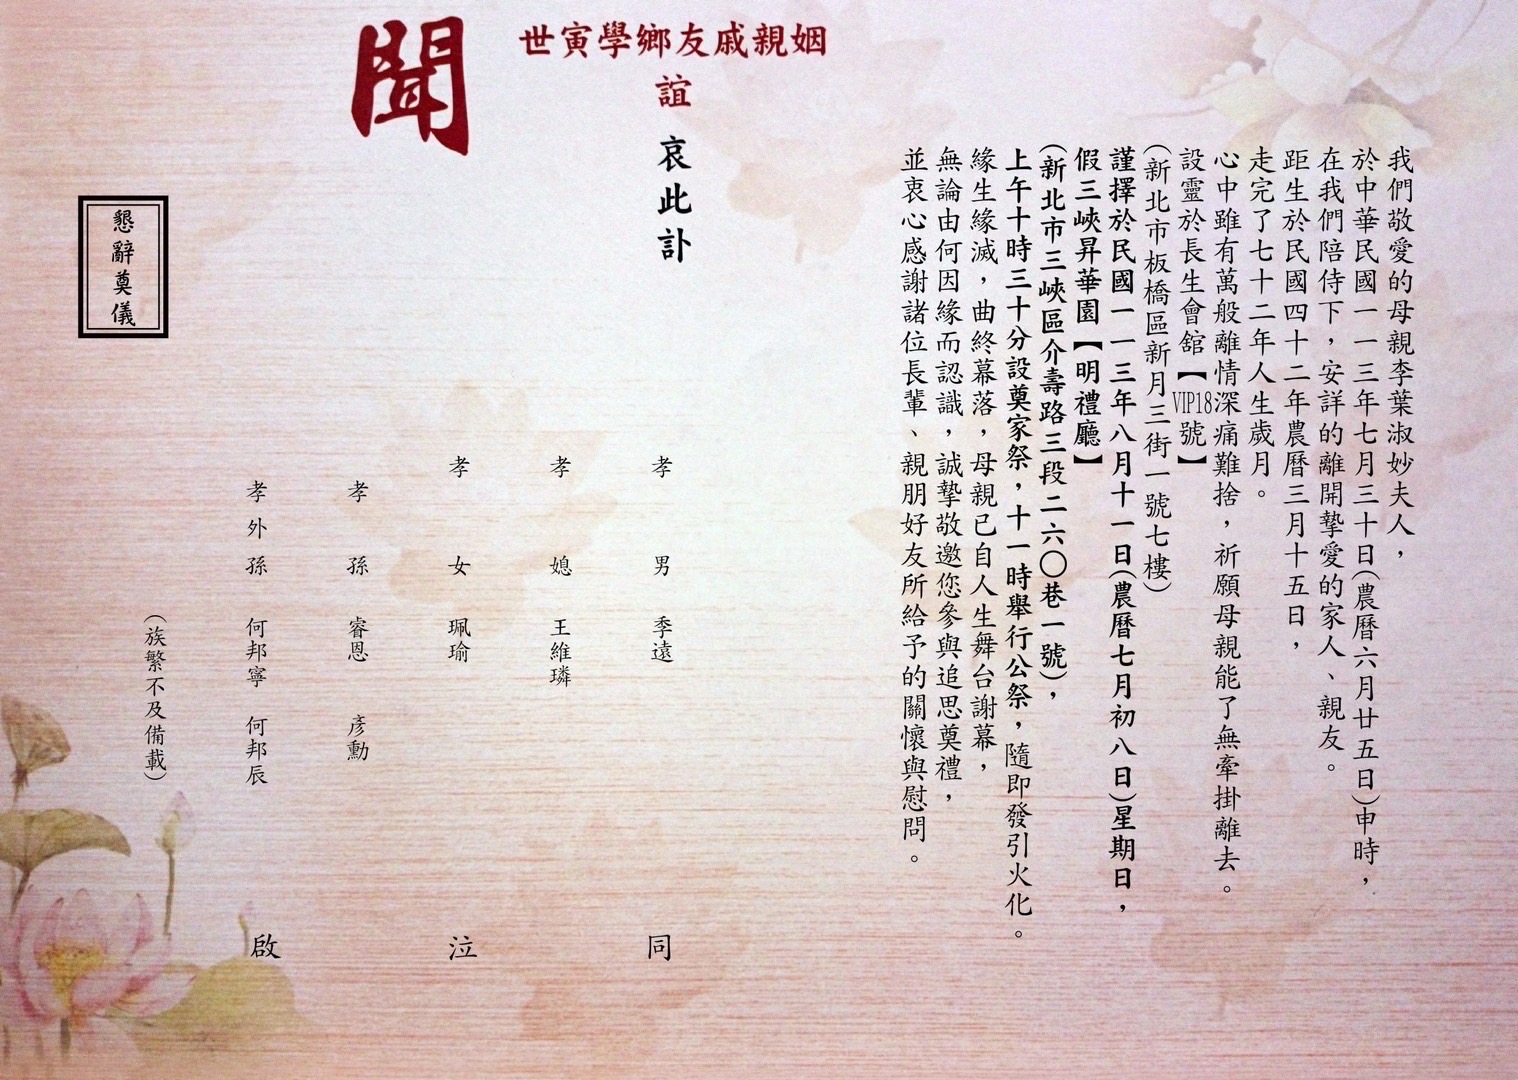 我們敬愛的母親李葉淑妙夫人，
於中華民國一一三年七月三十日(農曆六月廿五日)申時，
在我們陪侍下，安詳的離開摯愛的家人、親友。
距生於民國四十二年農曆三月十五日，
走完了七十二年人生歲月。
心中雖有萬般離情深痛難捨，祈願母親能了無牽掛離去。
設靈於長生會舘【VIP18號】
(新北市板橋區新月三街一號七樓)
謹擇於民國一一三年八月十一日(農曆七月初八日)星期日，
假三峽昇華園【明禮廳】
(新北市三峽區介壽路三段二六〇巷一號)，
上午十時三十分設奠家祭，十一時舉行公祭，隨即發引火化。
緣生緣滅，曲終幕落，母親已自人生舞台謝幕，
無論由何因緣而認識，誠摯敬邀您參與追思奠禮，
並衷心感謝諸位長輩、親朋好友所給予的關懷與慰問。
哀此訃
姻親戚友鄉學寅世
誼
聞
孝男 季遠
孝媳 王維璘
孝女 珮瑜
孝孫 睿恩 彥勳
孝外孫 何邦寧 何邦辰
(族繁不及備載)
同泣啟
懇辭奠儀